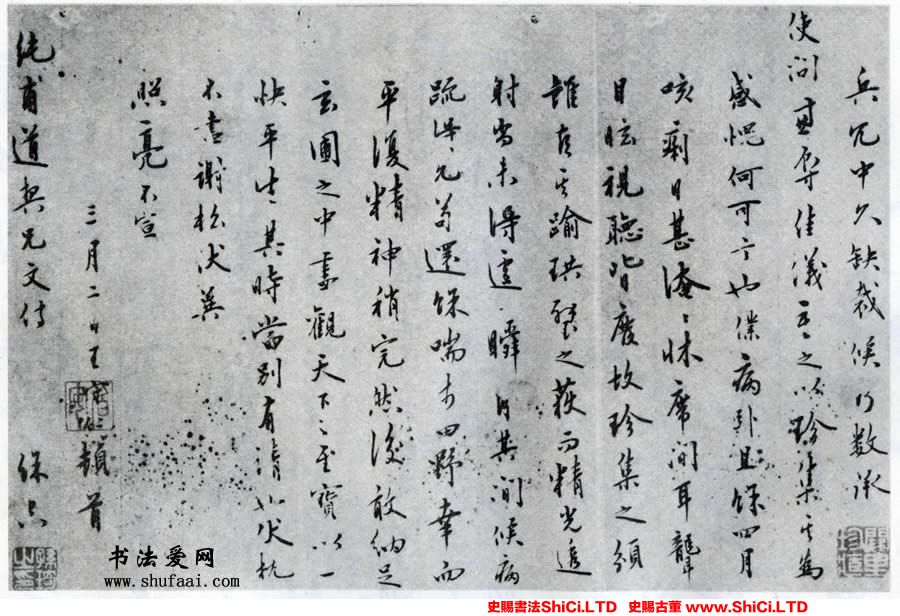 兵冗中久缺裁候乃数承
使问重辱佳仪言之以珍集其为
感愧何可言也仆病卧且馀四月
咳剩日甚淹淹床席间耳聋
目眩视听皆废故珍集之颁
虽有逾珙璧之获而精光追
射尚未得一瞬于其间候病
疏得免苟还馀喘于田野幸而
平复精神稍完然后敢纳足
玄圃之中尽观天下之至宝以一
快平生其时当别有请也伏枕
不尽谢私伏冀
照亮不宣
三月二日王守仁顿首
纯甫道契兄文侍
馀空
书法爱网
www.shufaai.com
史賜書法ShiCi.LTD 史賜古董 www.ShiCi.LTD